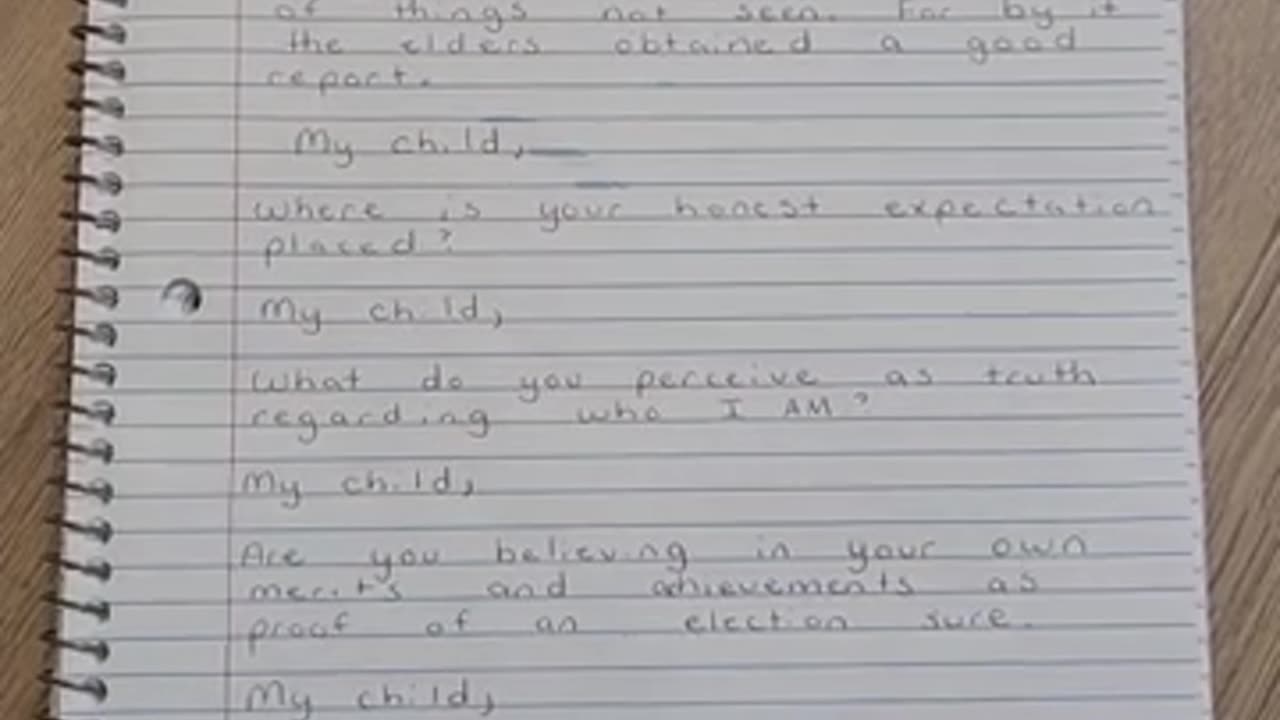 of things not seen. For by it
the elders obtained a good
report.
My child,
Where is your honest expectation
placed?
My child,
What do you perceive as truth
regarding who I AM?
My child,
Are you believing in your own
merits and achievements as
proof of an election sure.
My child,